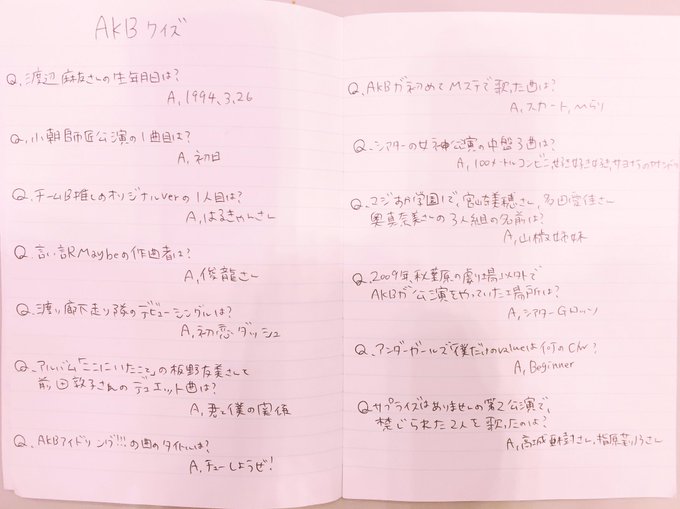 AKBクイズ
Q、渡辺麻友さんの生年月日は?
A、1994、3、26
Q、小朝師匠公演の1曲目は?
A、初日
Q、チームB推しのオリジナルverの1人目は?
A、はるきゃんさん
Q、言い訳Maybeの作曲者は?
A、俊龍さん
Q、渡り廊下走り隊のデビューシングルは?
A、初恋ダッシュ
Q、アルバム「ここにいたこと」の板野友美さんと
前田敦子さんのデュエット曲は?
A、君と僕の関係
Q、AKBアイドリング!!!の曲のタイトルは?
A、チューしようぜ!
Q、AKBが初めてMステで歌った曲は?
A、スカート、ひらり
Q、シアターの女神公演の中盤3曲は?
A、100メートルコンビニ、好き好き好き、サヨナラのカナシバリ
Q、マジすか学園1で、宮崎美穂さん、多田愛佳さん
奥真奈美さんの3人組の名前は?
A、山椒姉妹
Q、2009年、秋葉原の劇場以外で
AKBが公演をやっていた場所は?
A、シアターGロッソ
Q、アンダーガールズ「僕だけのvalueは何のC/W?
A、Beginner
Q、サプライズはありませんの第2公演で、
禁じられた2人を歌ったのは?
A、高城亜樹さん、指原莉乃さん